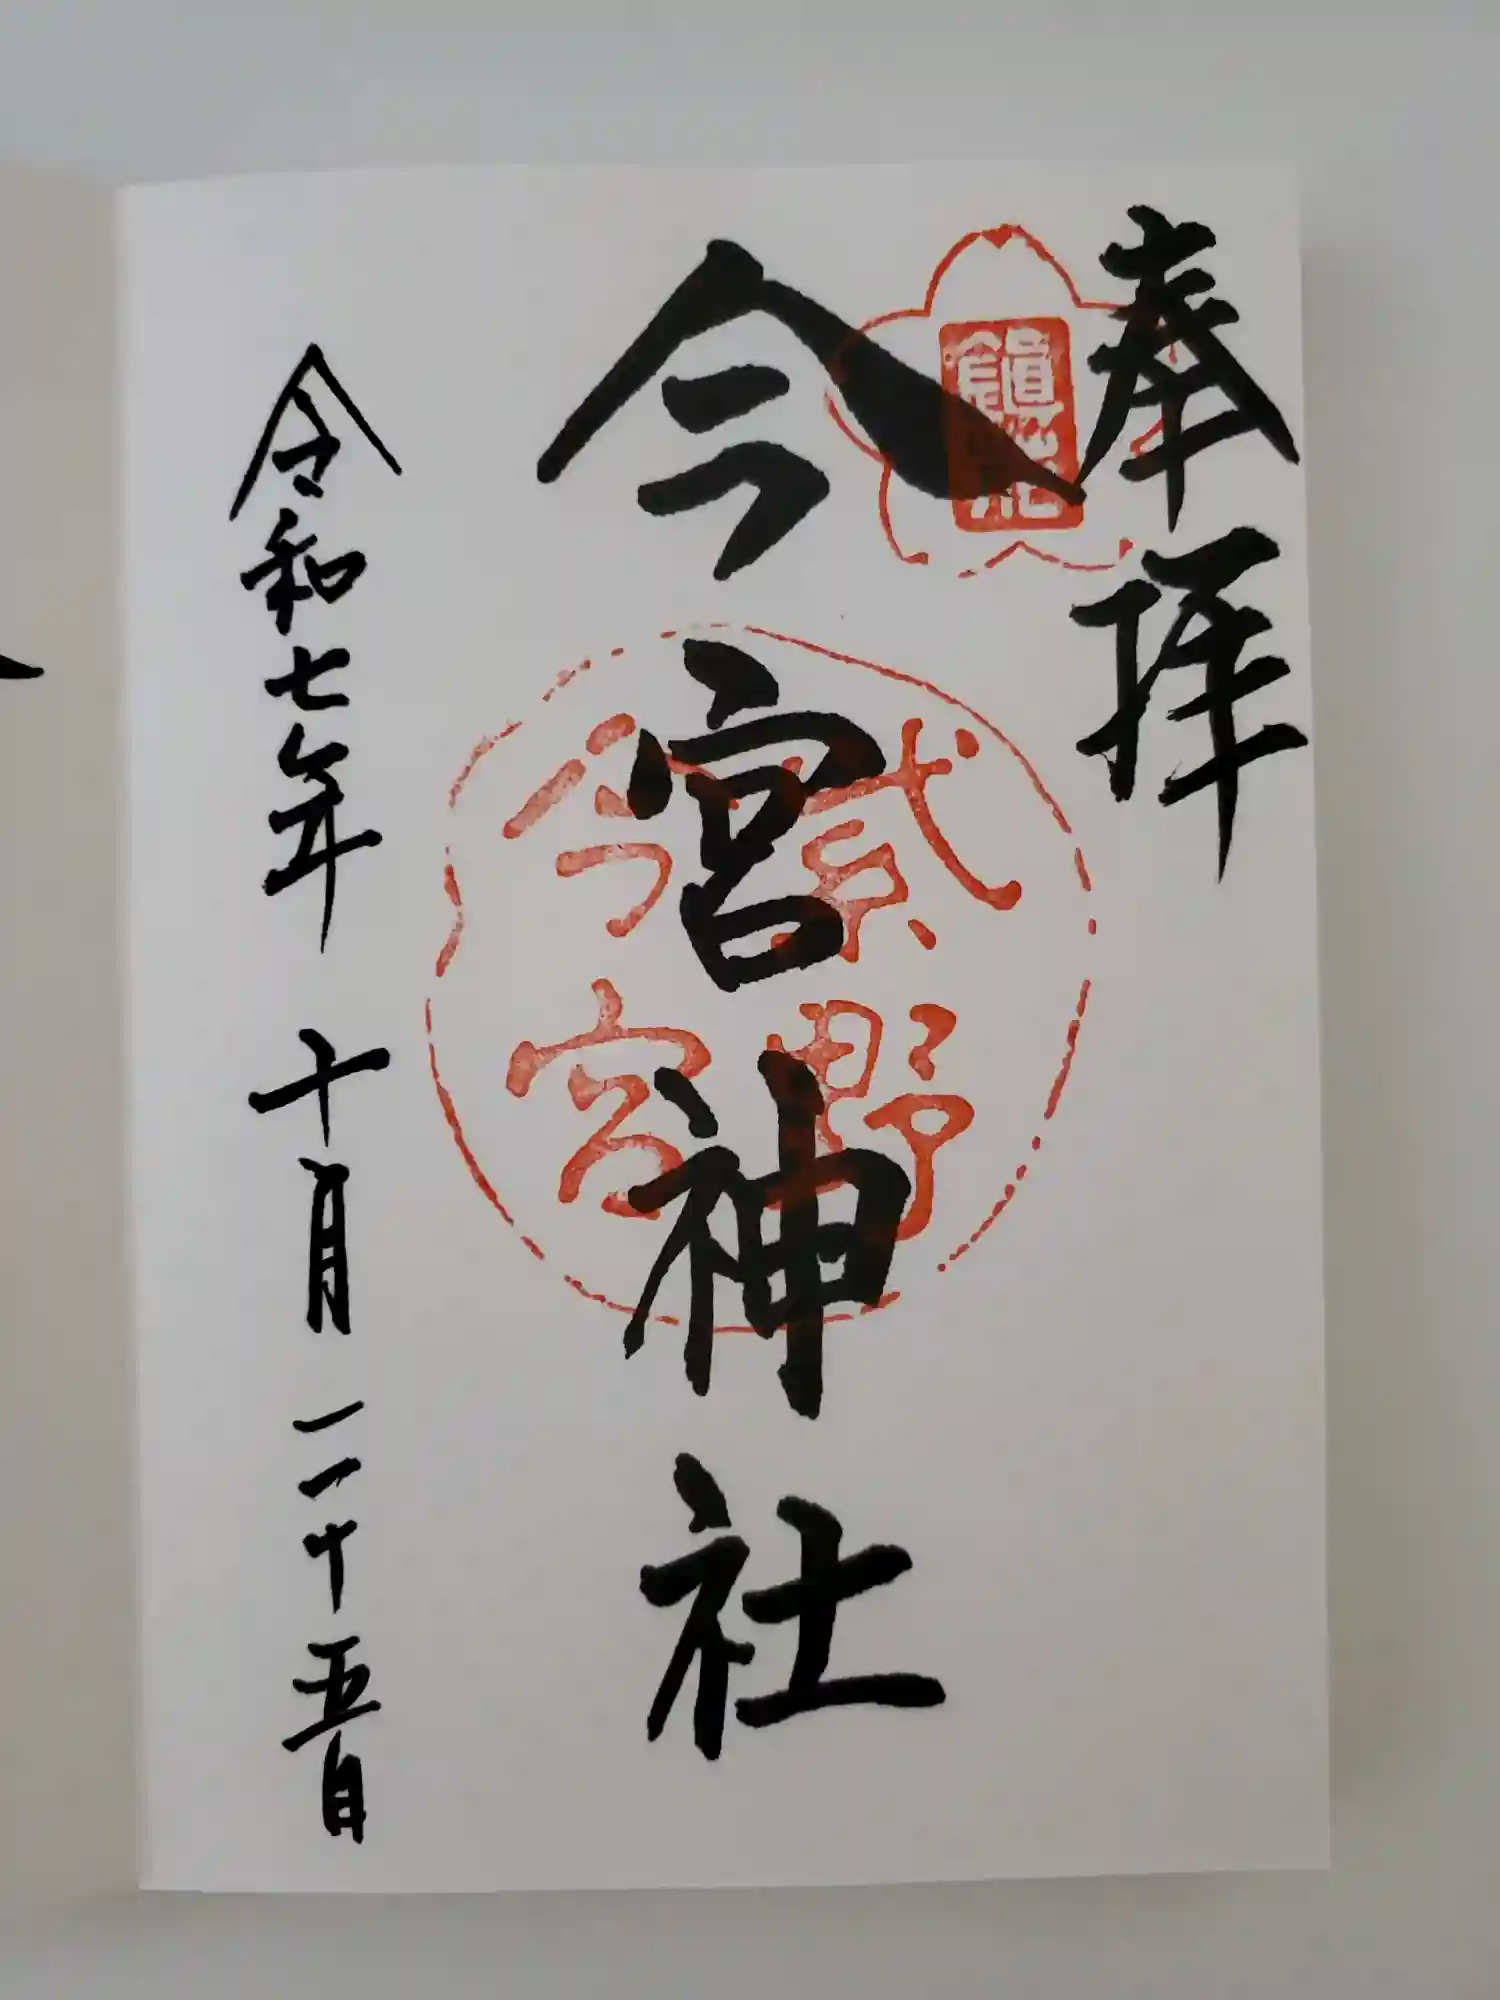 奉拝
鎮花
今宮神社
紫野
今宮
令和七年 十月 二十五日